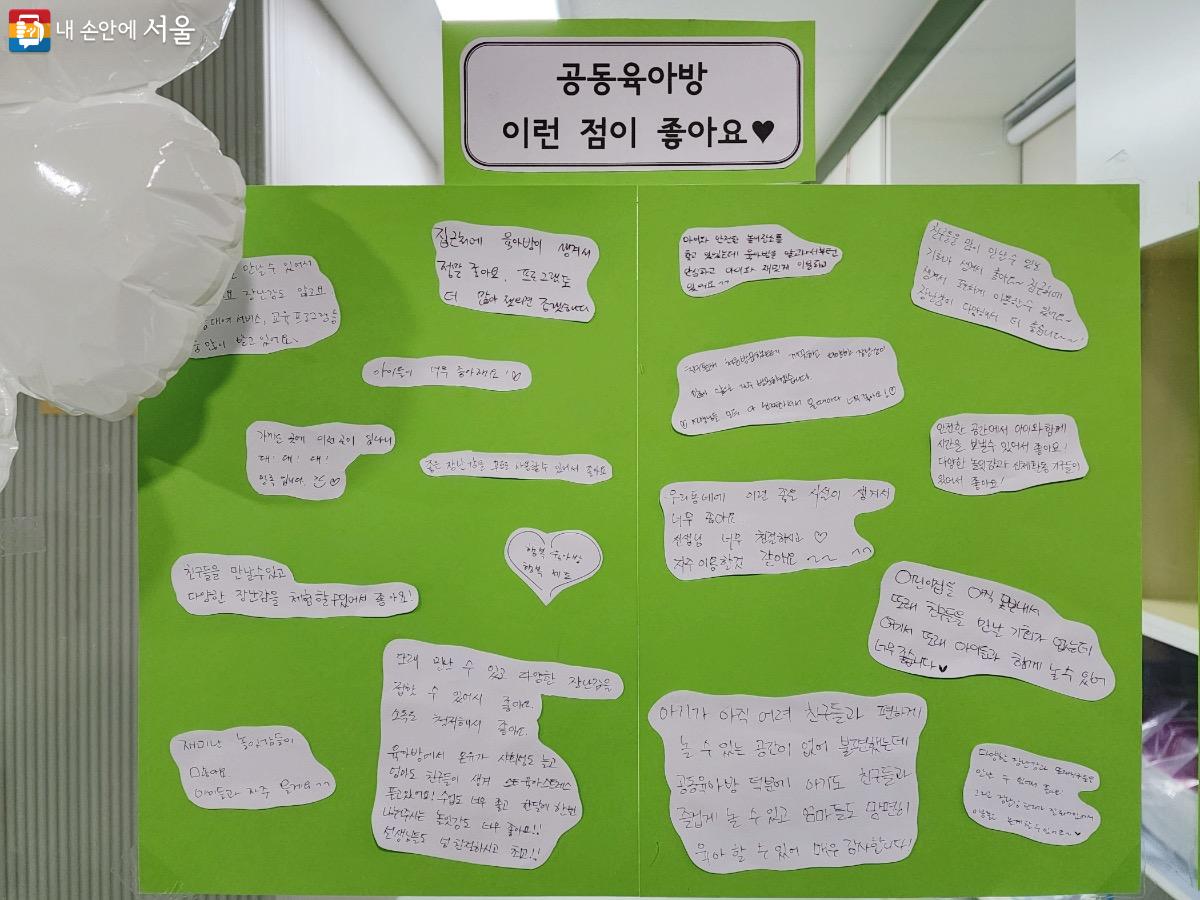 내 손안에 서울
공동육아방
이런 점이 좋아요♥
만날 수 있어서
장난감도 많고요
대여 서비스, 교육 프로그램등
많이 받고 있어요.
집근처에 육아방이 생겨서
정말 좋아요. 프로그램도
더 많아 졌으면 좋겠습니다
아이들이 너무 좋아해요! ♡
가까운 곳에 이런 곳이 있다니
대! 대! 대!
만족 입니다. ♡
좋은 장난감을 모두 사용할수 있어서 좋아요
행복 육아방
행복
친구들을 만날수있고
다양한 장난감을 체험할수있어서 좋아요!
또래 만날 수 있고 다양한 장난감을
접할 수 있어서 좋아요.
소독도 철저해서 좋아요.
육아방에서 온유가 사회성도 늘고
엄마도 친구들이 생겨 육아스트레스
풀고있어요! 수업도 너무 좋고 한달에 한번
나눠주시는 놀잇감도 너무 좋아요!!
선생님들도 넘 친절하시고 최고!!
재미난 놀잇감들이
많아요
아이들과 자주 올게요^^
아이와 안전한 놀이장소를
찾고 있었는데 육아방을 알고나서부턴
안심하고 아이와 재밌게 이용하고
있어요^^
친구들을 많이 만날수 있는
기회가 생겨서 좋아요~ 집근처에
생겨서 편하게 이용할수 있어요~
장난감이 다양해서 더 좋습니다~~!
자주 방문하겠습니다.
너무 좋아요! ♡
안전한 공간에서 아이와 함께
시간을 보낼수 있어서 좋아요!
다양한 놀잇감과 신체활동 기구들이
있어서 좋아요!
우리동네에 이런 좋은 시설이 생겨서
너무 좋아요
선생님 너무 친절하시고 ♡
자주 이용할것 같아요~~ ^^
어린이집을 아직 못보내서
또래 친구들을 만날 기회가 없는데
여기서 또래 아이들과 함께 놀 수 있어
너무 좋습니다♥
아기가 아직 어려 친구들과 편하게
놀 수 있는 공간이 없어 불편했는데
공동육아방 덕분에 아기도 친구들과
즐겁게 놀 수 있고 엄마들도 맘편히
육아 할 수 있어 매우 감사합니다!
다양한 장난감과 또래친구들을
만날 수 있어서 좋아요